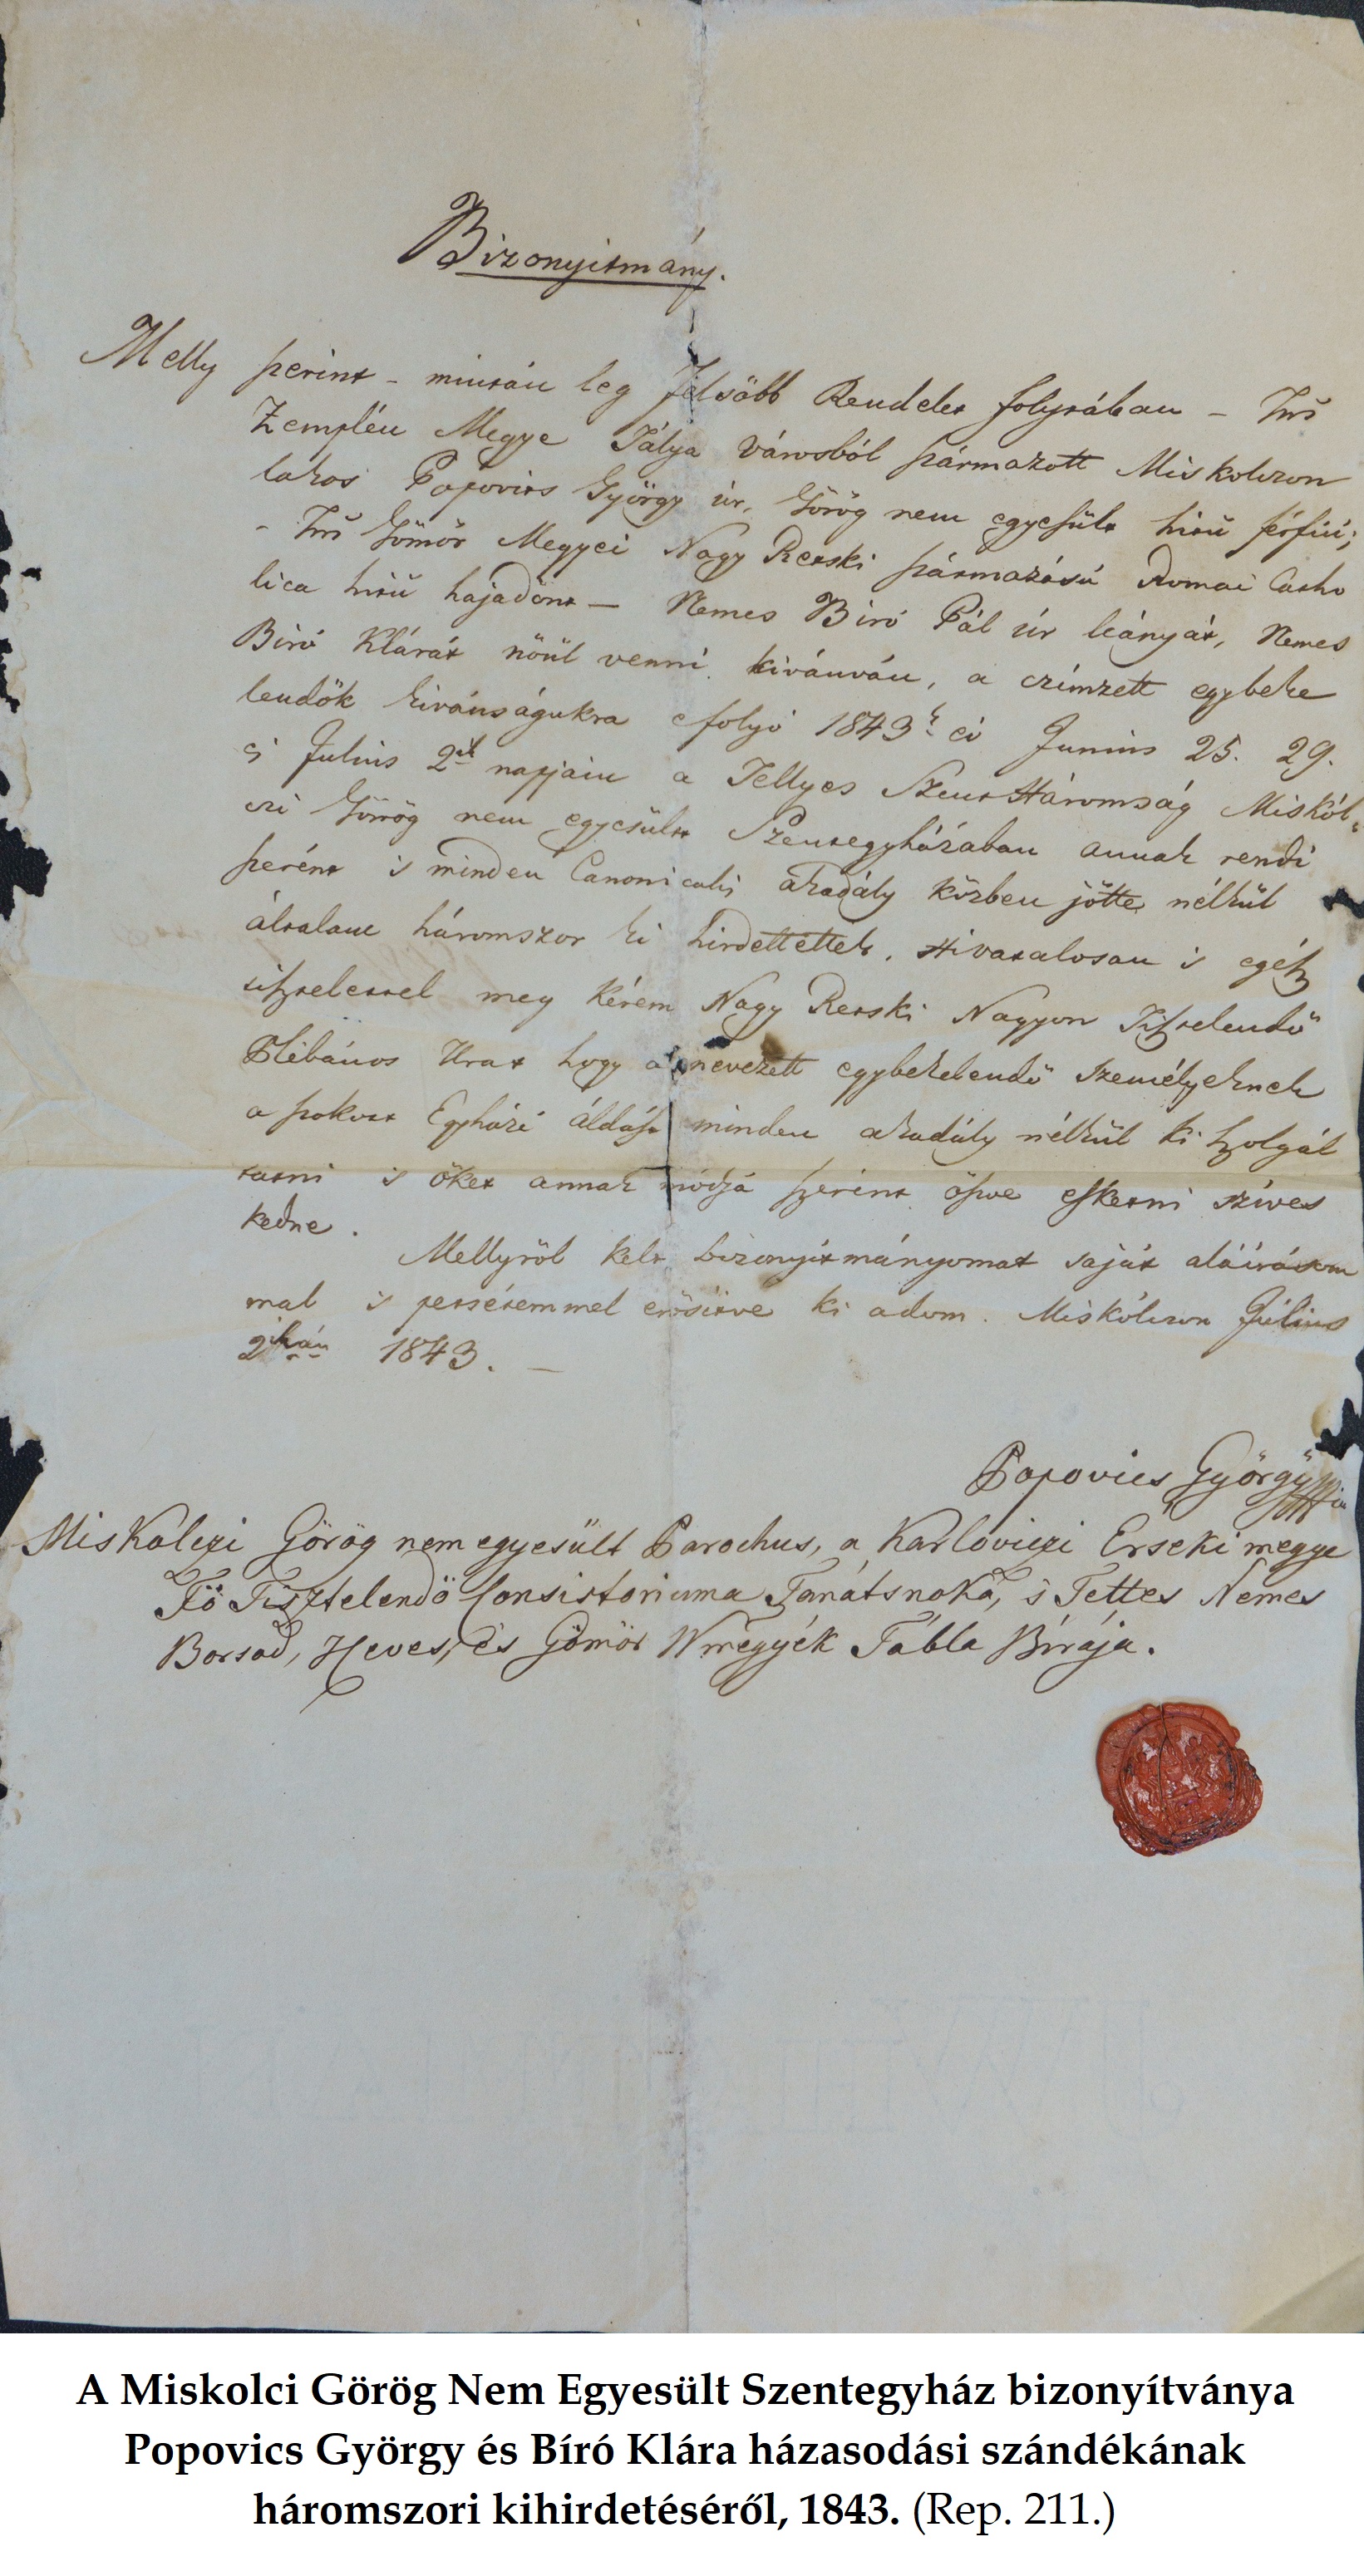 Bizonyitmány.
Melly szerint – miután leg felsőbb Rendelet folytában – Tns
Zemplén Megye Tálya városból származott Miskolczon
lakos Popovits György úr, Görög nem egyesült hitű férfiú;
- Tns Gömör Megyei Nagy Retski származású Romai Catho
lica hitű hajadont — Nemes Biró Pál úr leányát, Nemes
Biró Klárát nőül venni kivánván, a czímzett egybeke
lendők kivánságukra e folyó 1843 ei Junius 25. 29.
s Julius 2ik napjain a Tellyes Szent Háromság Miskól-
czi Görög nem egyesült Szentegyházában annak rendi
szerént is minden Canonicalis akadály közben jötte nélkül
általam háromszor ki hirdettettek. Hivatalosan is egész
tisztelettel meg kérem Nagy Retski Nagyon Tisztelendő
Plébános Urat hogy a nevezett egybekelendő személyeknek
a szokott Egyházi áldást minden akadály nélkül ki szolgál
tatni is őket annak módja szerént öszve esketni szíves
kedne.
Mellyről kelt bizonyitmányomat saját aláírásom
mal is petsétemmel erősitve ki adom. Miskólczon Július
2ikán 1843. —
Popovics György
Miskolczi Görög nem egyesült Parochus, a Karloviczi Érseki megye
Fő Tisztelendő Consistoriuma Tanátsnoka, s Tettes Nemes
Borsod, Heves, és Gömör Vmegyék Tábla Birája.
A Miskolci Görög Nem Egyesült Szentegyház bizonyítványa
Popovics György és Bíró Klára házasodási szándékának
háromszori kihirdetéséről, 1843. (Rep. 211.)